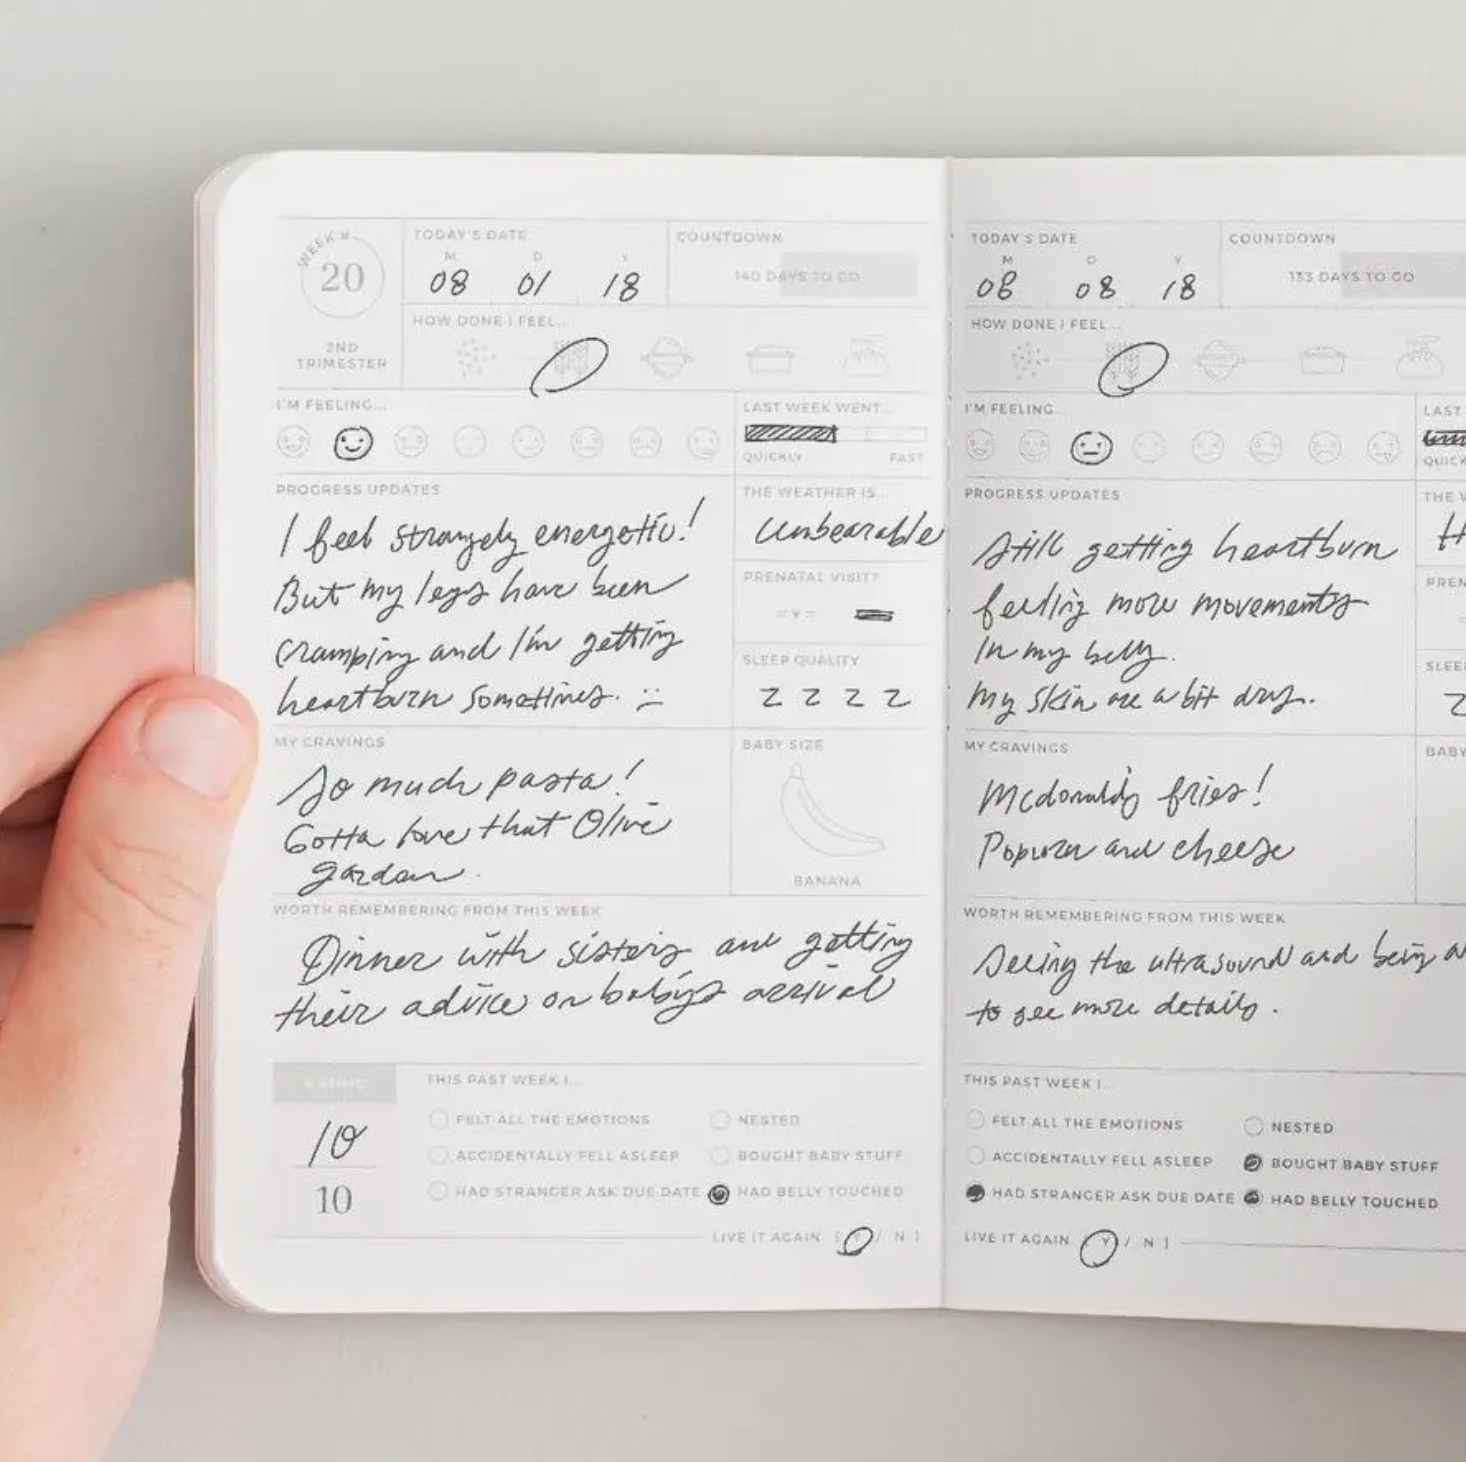 WEEK #
20
2ND
TRIMESTER
TODAY'S DATE
M D Y
08 01 18
COUNTDOWN
140 DAYS TO GO
HOW DONE I FEEL...
I'M FEELING...
LAST WEEK WENT...
QUICKLY FAST
PROGRESS UPDATES
I feel strangely energetic!
But my legs have been
cramping and I'm getting
heartburn sometimes. :(
THE WEATHER IS...
Unbearable
PRENATAL VISIT?
= Y =
SLEEP QUALITY
Z Z Z Z
MY CRAVINGS
So much pasta!
Gotta love that Olive
garden.
BABY SIZE
BANANA
WORTH REMEMBERING FROM THIS WEEK
Dinner with sisters and getting
their advice on baby's arrival
RATING
10
10
THIS PAST WEEK I...
FELT ALL THE EMOTIONS
NESTED
ACCIDENTALLY FELL ASLEEP
BOUGHT BABY STUFF
HAD STRANGER ASK DUE DATE
HAD BELLY TOUCHED
LIVE IT AGAIN [ Y / N ]
TODAY'S DATE
M D Y
08 08 18
COUNTDOWN
133 DAYS TO GO
HOW DONE I FEEL...
I'M FEELING...
LAST
QUICK
PROGRESS UPDATES
Still getting heartburn
feeling more movements
in my belly.
My skin are a bit dry.
THE W
PREN
SLEE
Z
MY CRAVINGS
Mcdonald's fries!
Popcorn and cheese
BABY
WORTH REMEMBERING FROM THIS WEEK
Seeing the ultrasound and being a
to see more details.
THIS PAST WEEK I...
FELT ALL THE EMOTIONS
NESTED
ACCIDENTALLY FELL ASLEEP
BOUGHT BABY STUFF
HAD STRANGER ASK DUE DATE
HAD BELLY TOUCHED
LIVE IT AGAIN [ Y / N ]